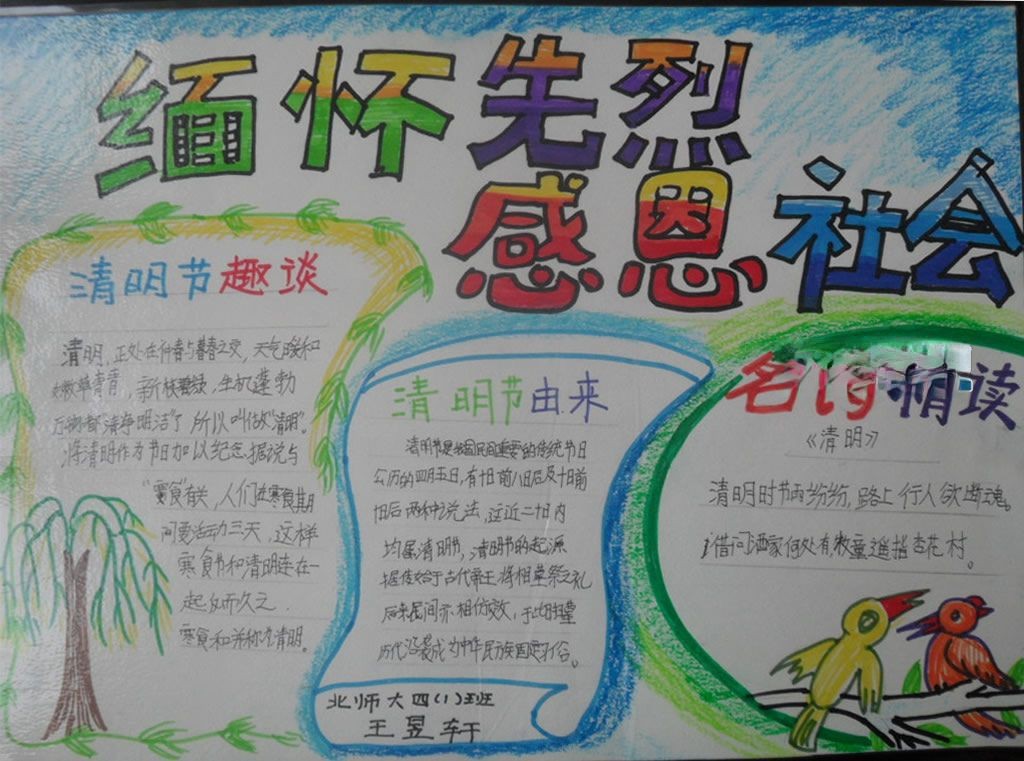 缅怀先烈
感恩社会
清明节趣谈
清明,正处在仲春与暮春之交,天气暖和
嫩草青青,新枝碧绿,生机蓬勃
万物都“清净明洁”了所以叫做“清明”。
将清明作为节日加以纪念.据说与
“寒食”有关,人们在寒食期
间要活动三天,这样
寒食节和清明连在一
起久而久之.
寒食和并称为清明。
清明节由来
清明节是我国民间重要的传统节日
公历的四月五日,有十日前八日后及十日前
十日后两种说法,这近二十日内
均属清明节,清明节的起源
据传始于古代帝王将相墓祭之礼
后来民间亦相仿效,于
历代沿袭成为中华民族固定
北师大四(1)班
王昱轩
名词精读
《清明》
清明时节雨纷纷,路上行人欲断魂。
借问酒家何处有牧童遥指杏花村。